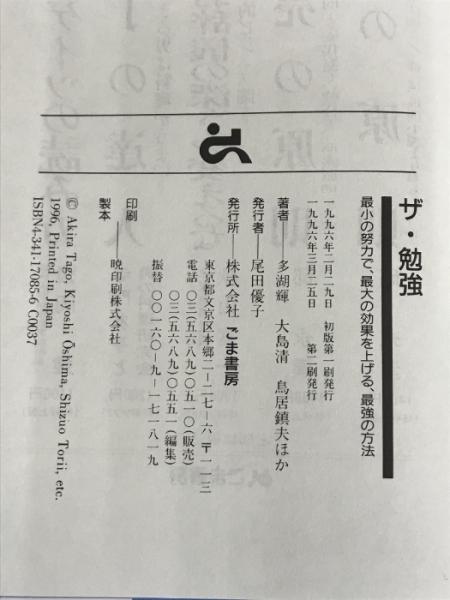 ザ・勉強
最小の努力で、最大の効果を上げる、最強の方法
一九九六年二月二九日　初版第一刷発行
一九九六年三月二五日　第二刷発行
著者――多湖輝　大島清　鳥居鎮夫ほか
発行者――尾田優子
発行所――株式会社 ごま書房
東京都文京区本郷二―二七―六 〒一一三
電話　〇三(五六八九)〇五一〇(販売)
〇三(五六八九)〇五五一(編集)
振替　〇〇一六〇―九―一七一八一九
印刷
製本――暁印刷株式会社
© Akira Tago, Kiyoshi Ōshima, Shizuo Torii, etc.
1996, Printed in Japan
ISBN4-341-17085-6 C0037